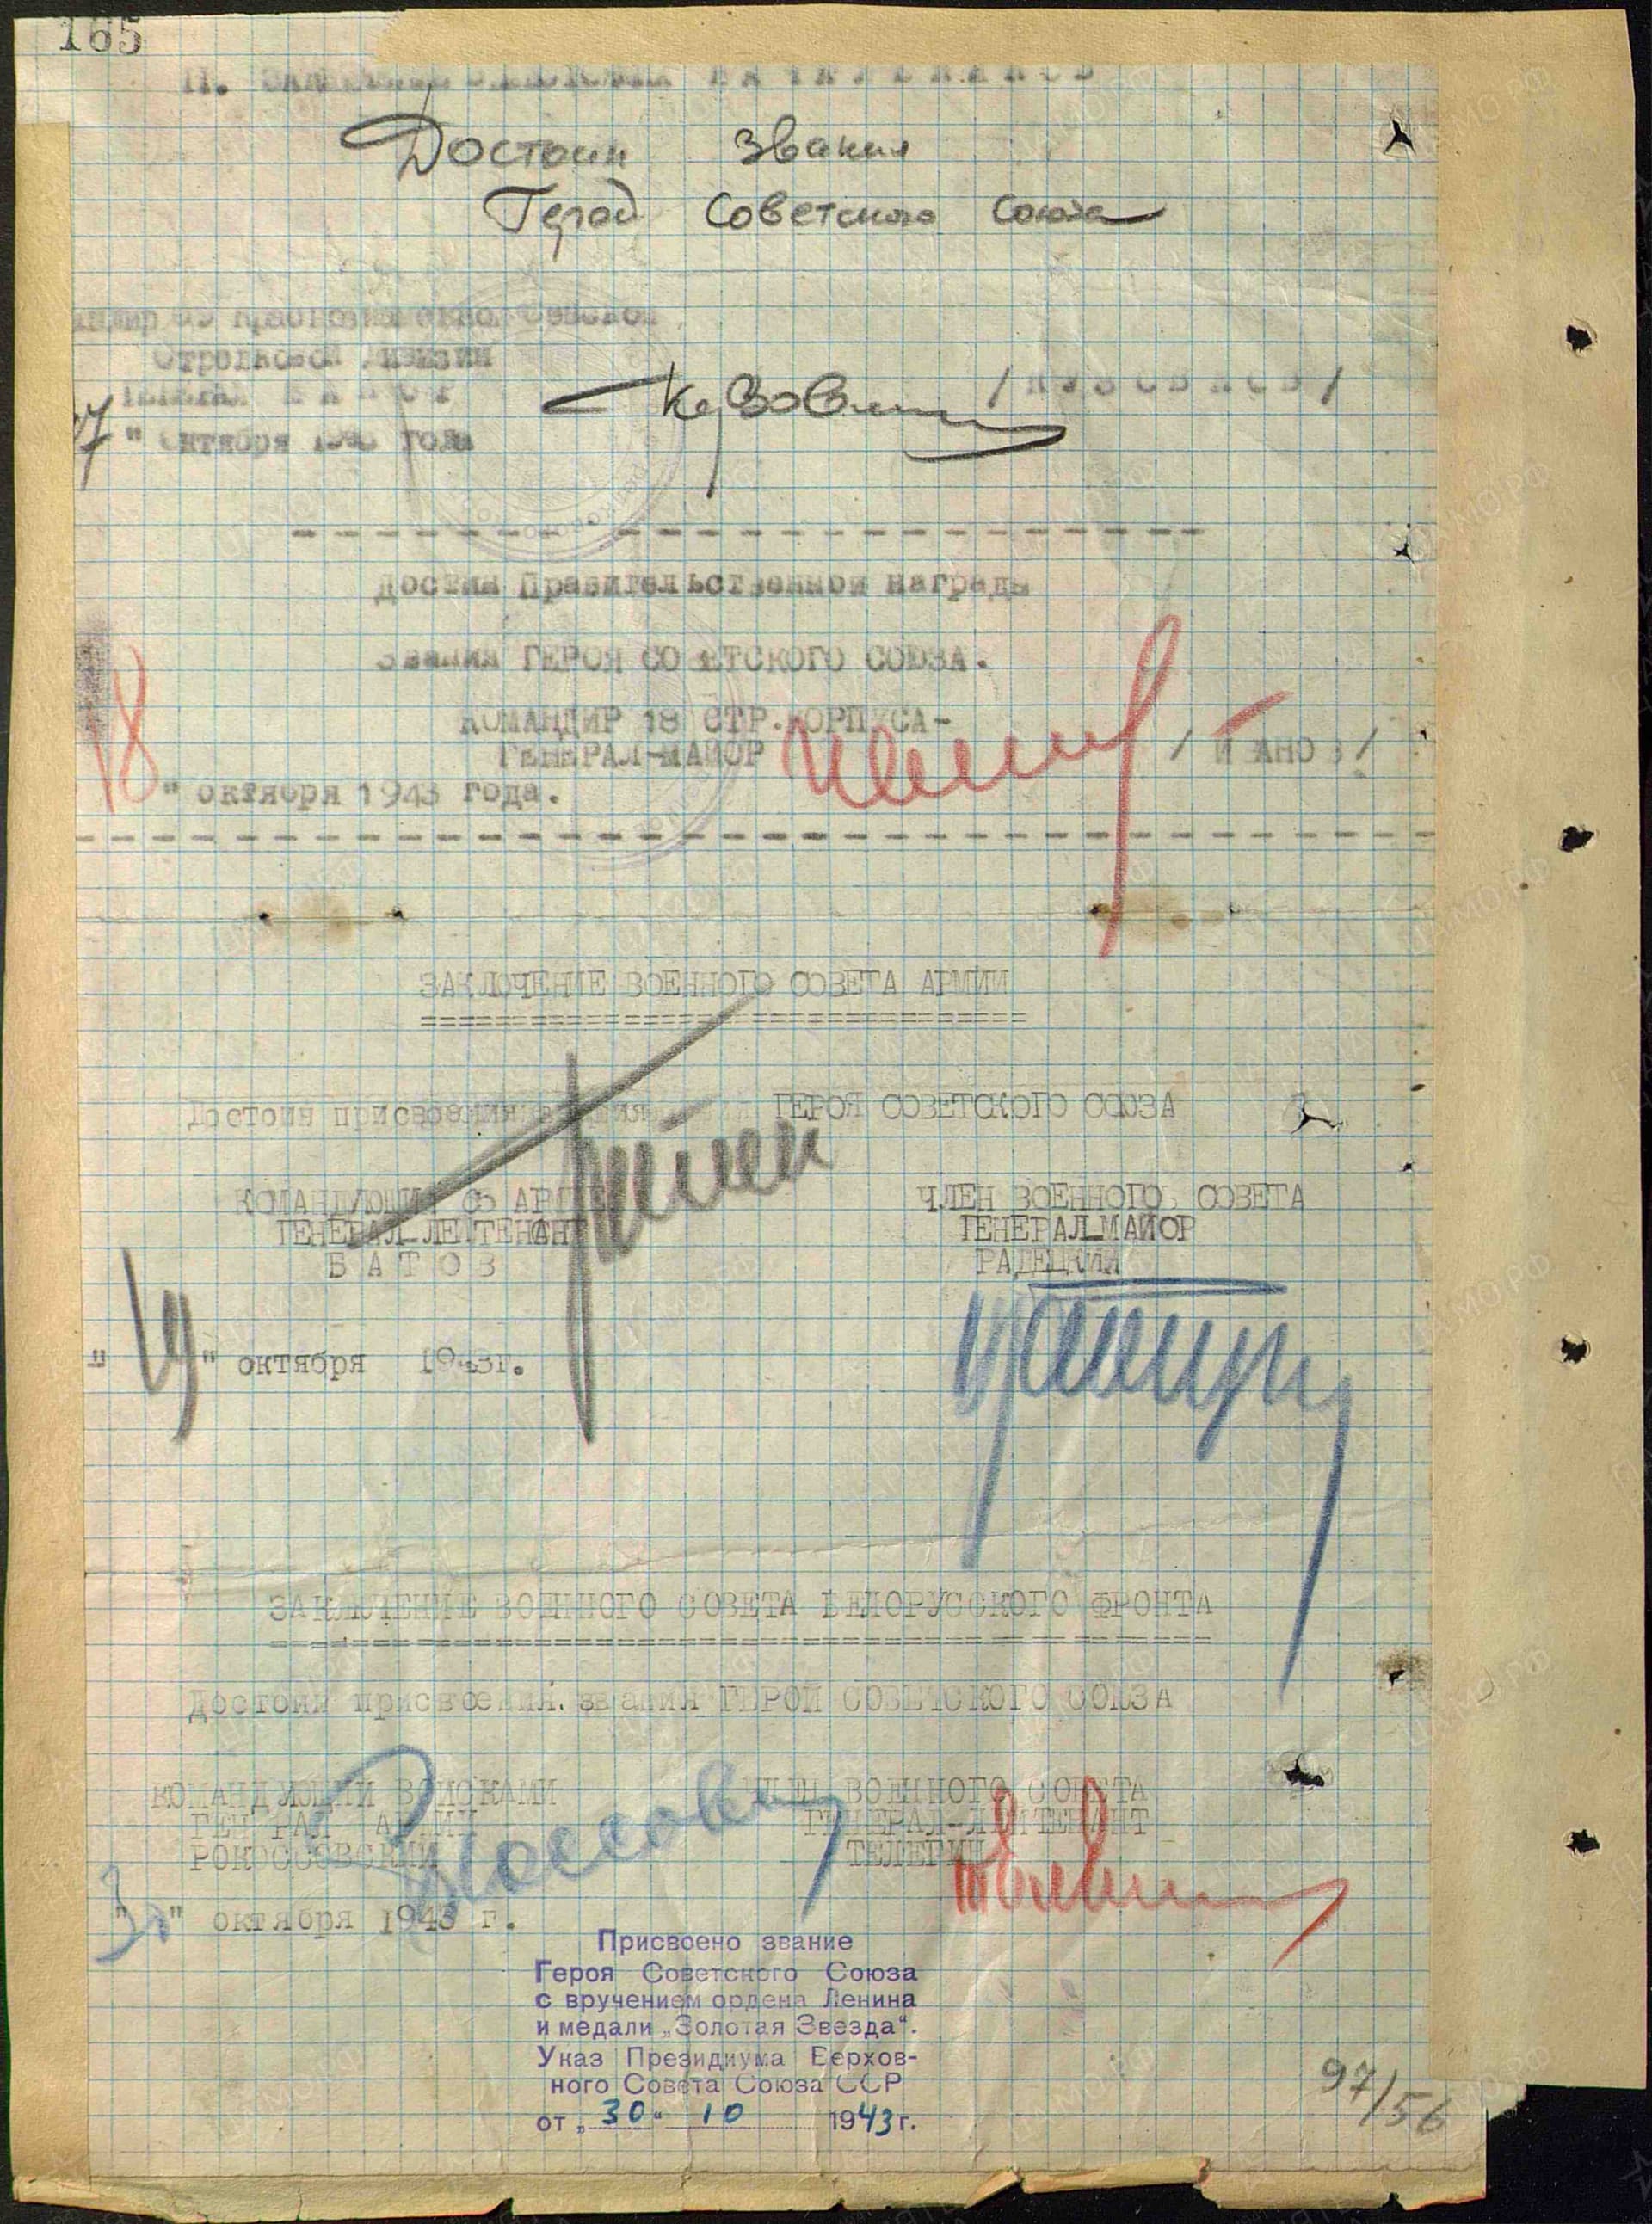 165
II. НАЧАЛЬНИКОВ
Достоин звания
Герой Советского Союза
Краснознаменной Севской
Стрелковой дивизии
Кузовк / КУЗОВКОВ /
" октября 1943 года
Достин Правительственной награды
звания ГЕРОЯ СОВЕТСКОГО СОЮЗА.
КОМАНДИР 18 СТР. КОРПУСА-
ГЕНЕРАЛ-МАЙОР / ИВАНОВ /
18 " октября 1943 года.
ЗАКЛЮЧЕНИЕ ВОЕННОГО СОВЕТА АРМИИ
Достоин присвоения звания ГЕРОЯ СОВЕТСКОГО СОЮЗА
КОМАНДУЮЩИЙ 65 АРМ ЧЛЕН ВОЕННОГО СОВЕТА
ГЕНЕРАЛ-ЛЕЙТЕНАНТ ГЕНЕРАЛ-МАЙОР
БАТОВ РАДЕЦКИЙ
" 19 " октября 1943г.
ЗАКЛЮЧЕНИЕ ВОЕННОГО СОВЕТА БЕЛОРУССКОГО ФРОНТА
Достоин присвоения звания ГЕРОЙ СОВЕТСКОГО СОЮЗА
КОМАНДУЮЩИЙ ВОЙСКАМИ ЧЛЕН ВОЕННОГО СОВЕТА
ГЕНЕРАЛ АРМИИ ГЕНЕРАЛ-ЛЕЙТЕНАНТ
РОКОССОВСКИЙ ТЕЛЕГИН
"30" октября 1943 г.
Присвоено звание
Героя Советского Союза
с вручением ордена Ленина
и медали „Золотая Звезда“.
Указ Президиума Верхов-
ного Совета Союза ССР
от „30“ 10 1943 г.
97/56